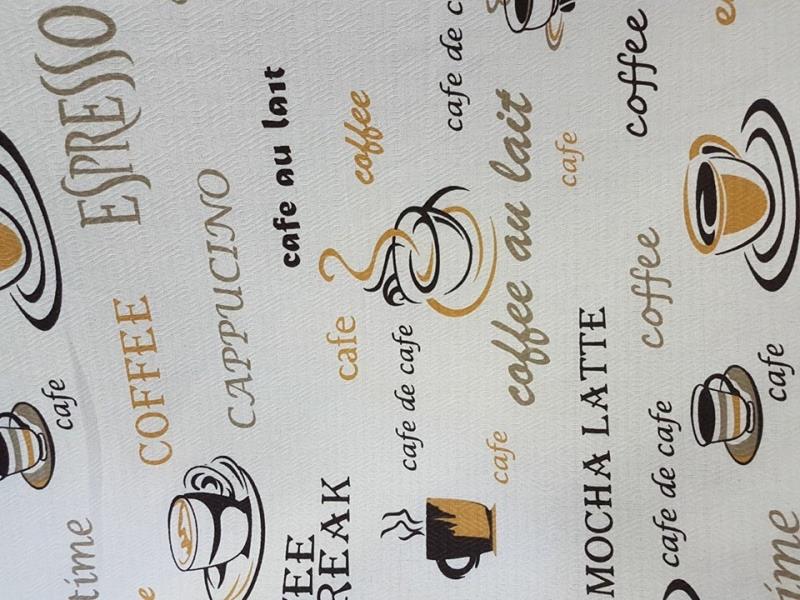 ESPRESSO
COFFEE
CAPPUCINO
cafe au lait
coffee
cafe
cafe
cafe de cafe
cafe de c
coffee au lait
cafe
cafe
MOCHA LATTE
coffee
coffee
cafe de cafe
cafe
time
REAK